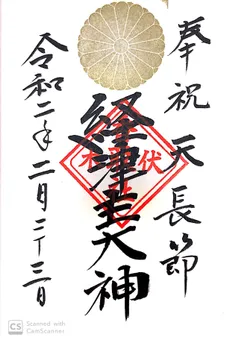 奉祝天長節
経津主大神
令和二年二月二十三日
伏
木
CS Scanned with
CamScanner